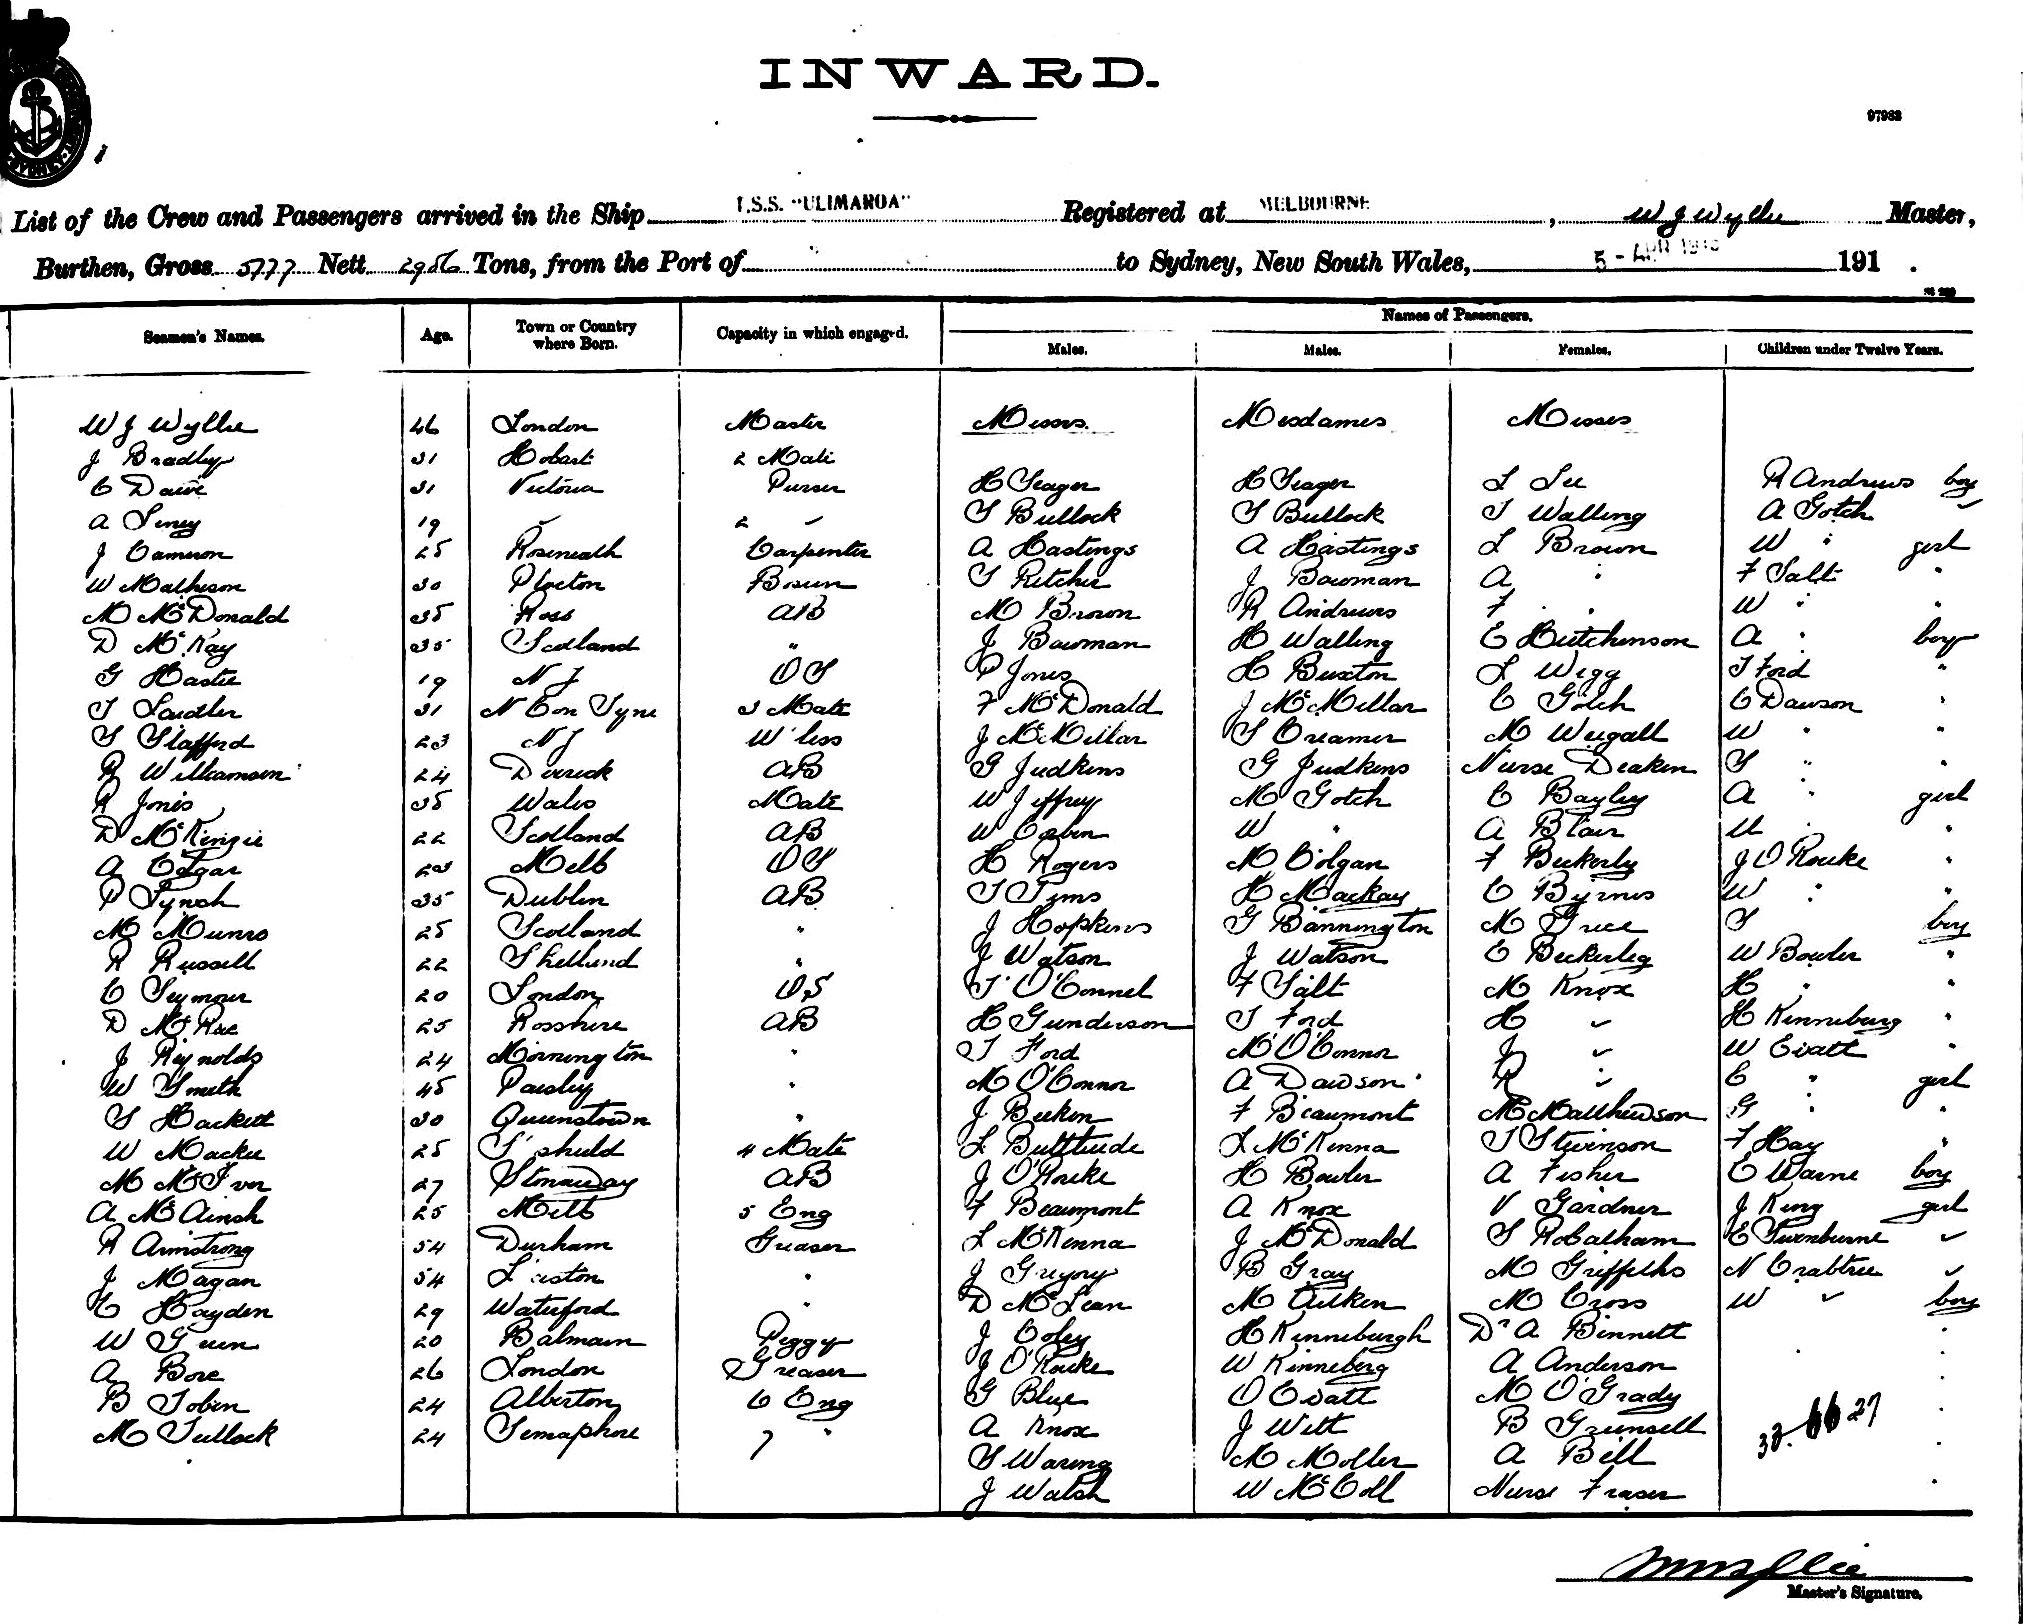 SYDNEY
INWARD.
97963
List of the Crew and Passengers arrived in the Ship T.S.S. "ULIMAROA" Registered at MELBOURNE, W J Wyllie Master,
Burthen, Gross 5777 Nett 2956 Tons, from the Port of to Sydney, New South Wales, 5 - APR 191 .
Names of Passengers.
Seamen's Names. Age. Town or Country where Born. Capacity in which engaged. Males. Males. Females. Children under Twelve Years.
W J Wyllie 46 London Master Messrs. Mesdames Misses
J Bradley 31 Hobart 2 Mate
C Dawe 31 Victoria Purser H Seager H Seager L Lee R Andrews boy
A Liney 19 ✓ 2 ✓ S Bullock S Bullock T Walling A Gotch ✓
J Cameron 25 Roseneath Carpenter A Hastings A Hastings L Brown W " girl
W Mathison 30 Plocton Bosun T Ritchie J Bowman A " F Salt "
M McDonald 35 Ross AB M Brown R Andrews F " W " "
D McKay 35 Scotland " J Bowman H Walling E Hutchinson A " boy
G Hastie 19 N Z OS P Jones H Buxton L Wigg T Ford "
T Sadler 31 N C on Tyne 3 Mate F McDonald J McMillar C Gotch C Dawson "
S Stafford 23 N Z W'less J McMillar S Creamer M Weigall W " "
R Williamson 24 AB G Judkins G Judkins Nurse Deaken S " "
R Jones 35 Wales Mate W Jeffrey M Gotch C Bayley A " girl
D McKenzie 22 Scotland AB W Corbin W " A Blair U " "
A Edgar 23 Melb OS H Rogers M Colgan F Beckerly J O'Rourke "
P Lynch 35 Dublin AB T Tims H Mackay C Byrnes W " "
M Munro 25 Scotland " J Hopkins G Bannington M Grice S boy
R Russell 22 Shetland " J Watson J Watson C Beckerleg W Bowler "
C Seymour 20 London OS T O'Connel F Salt M Knox H " "
D McRae 25 Rosshire AB H Gunderson T Ford H ✓ H Kinneburg "
J Reynolds 24 Mornington " T Ford M O'Connor J ✓ W Evatt "
W Smith 45 Paisley " M O'Connor A Dawson R ✓ E " girl
S Hackett 30 Queenstown " J Beeken F Beaumont M Matthewson G " "
W Mackie 25 S'shield 4 Mate L Bultitude L McKenna T Stevinson F Hay "
M McIver 27 Stonaway AB J O'Rourke H Bowler A Fisher C Warne boy
A McAinsh 25 Melb 5 Eng F Beaumont A Knox V Gardner J King girl
R Armstrong 54 Durham Greaser L McKenna J McDonald S Robatham E Swinburne ✓
J Magan 54 " J Gregory B Gray M Griffiths N Crabtree ✓
C Hayden 29 Waterford " D McLean M Aitken M Cross W ✓ boy
W Green 20 Balmain Peggy J Coley H Kinneburgh Dr A Bennett
A Bore 26 London Greaser J O'Rourke W Kinneberg A Anderson
B Tobin 24 Alberton 6 Eng G Blue O Evatt M O'Grady
M Tullock 24 Semaphore 7 " A Knox J Witt B Grunsell 32. 66 27
S Waring M Moller A Bell
J Walsh W McColl Nurse Fraser
Master's Signature.